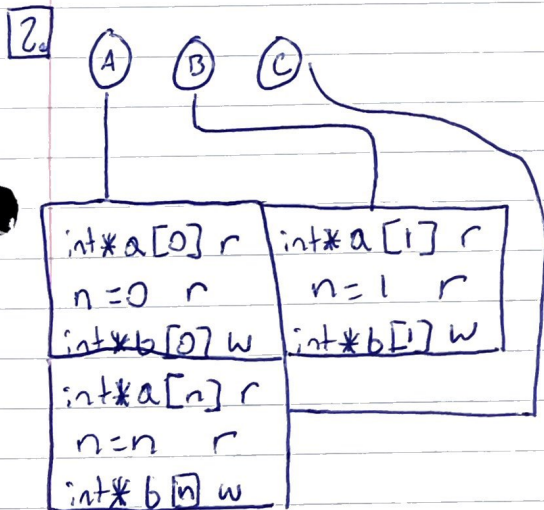 2.
A B C
int* a[0] r
n=0 r
int* b[0] w
int* a[1] r
n=1 r
int* b[1] w
int* a[n] r
n=n r
int* b[n] w